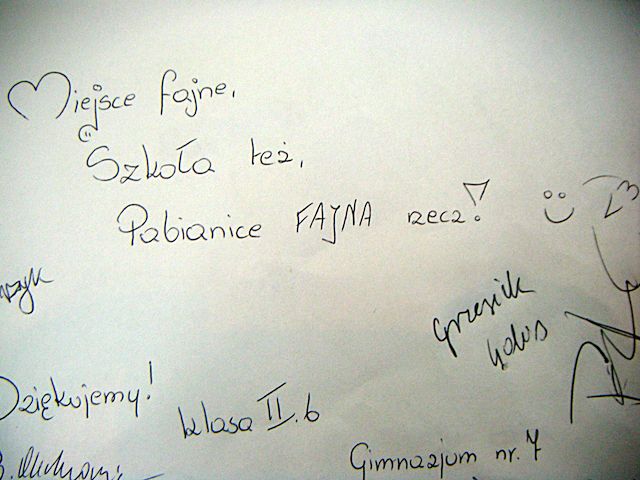 Miejsce fajne,
Szkoła też,
Pabianice FAJNA rzecz!
Grzesiek
Dziękujemy!
klasa II.b
Gimnazjum nr. 7